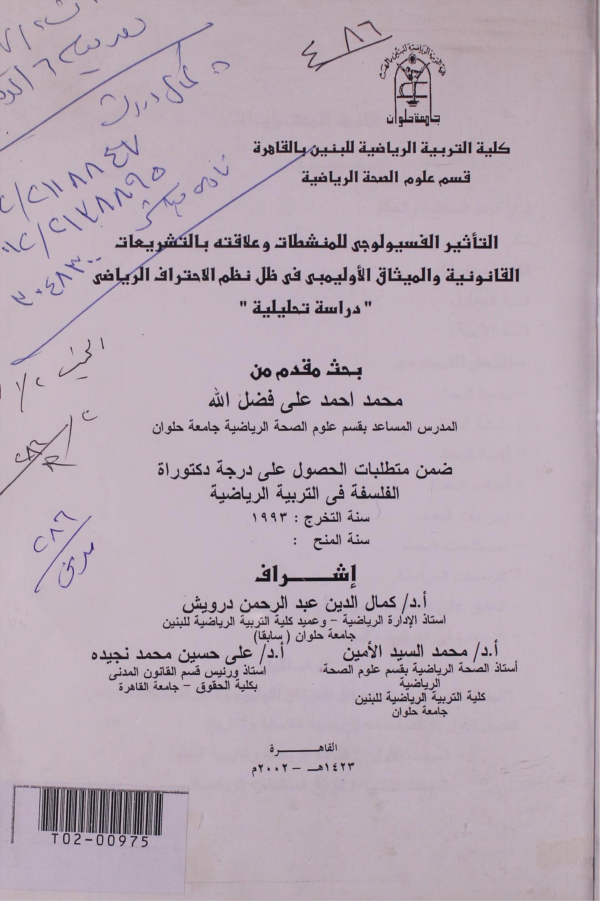 ٤٨٦
جامعة حلوان
كلية التربية الرياضية للبنين بالقاهرة
قسم علوم الصحة الرياضية
التأثير الفسيولوجى للمنشطات وعلاقته بالتشريعات
القانونية والميثاق الأوليمبى فى ظل نظم الاحتراف الرياضى
" دراسة تحليلية "
بحث مقدم من
محمد احمد على فضل الله
المدرس المساعد بقسم علوم الصحة الرياضية جامعة حلوان
ضمن متطلبات الحصول على درجة دكتوراة
الفلسفة فى التربية الرياضية
سنة التخرج : ١٩٩٣
سنة المنح :
إشـــراف
أ.د/ كمال الدين عبد الرحمن درويش
استاذ الإدارة الرياضية – وعميد كلية التربية الرياضية للبنين
جامعة حلوان ( سابقا)
أ.د/ محمد السيد الأمين
أستاذ الصحة الرياضية بقسم علوم الصحة
الرياضية
كلية التربية الرياضية للبنين
جامعة حلوان
أ.د/ على حسين محمد نجيده
استاذ ورئيس قسم القانون المدنى
بكلية الحقوق – جامعة القاهرة
القاهـــــرة
١٤٢٣هـ – ٢٠٠٢م
T02-00975